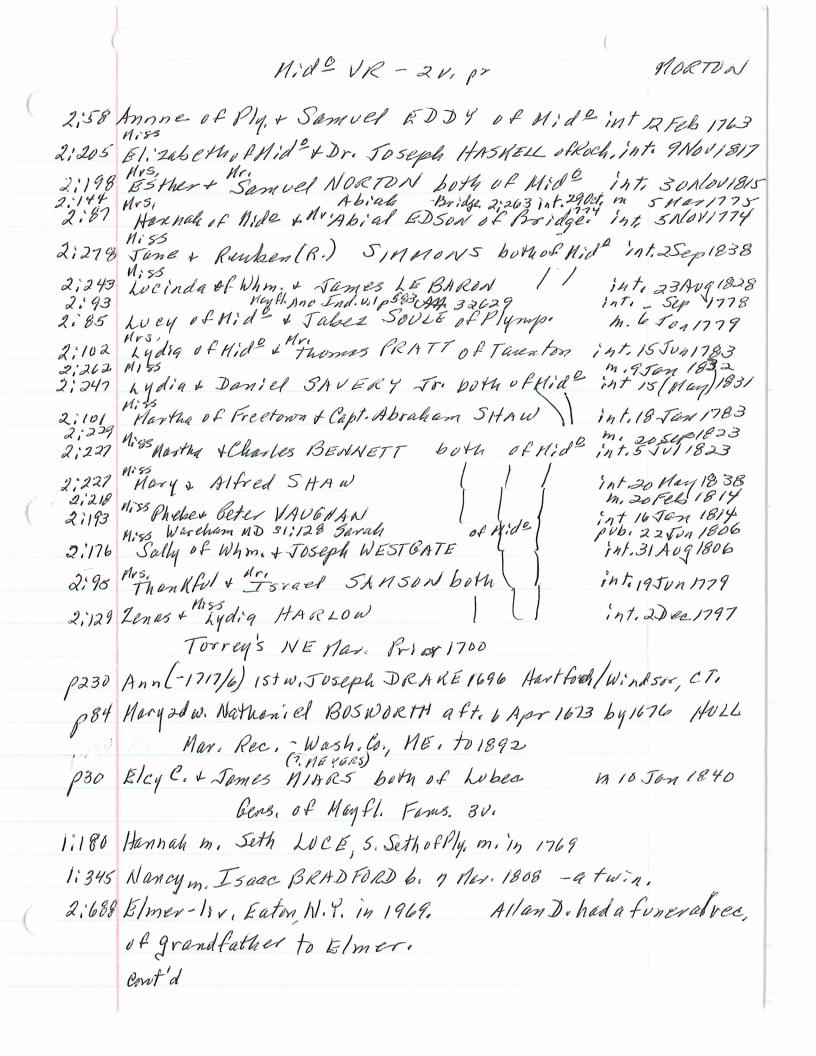 Mid^o VR - 2 v. pr MORTON
2:58 Annne of Ply. & Samuel EDDY of Mid^o int 12 Feb 1763
Miss
2:205 Elizabeth of Mid^o & Dr. Joseph HASKELL of Roch. int. 9 Nov 1817
Mrs. Mr.
2:198 Esther & Samuel NORTON both of Mid^o int. 30 Nov 1815
2:144 Mrs. Abiah Bridge 2:263 int. 29 Oct. m 5 Mar 1775
2:87 Hannah of Mid^o & Mr. Abial EDSON of Bridge. 774 int. 5 Nov 1774
Miss
2:278 Jane & Reuben (R.) SIMMONS both of Mid^o int. 2 Sep 1838
Miss
2:243 Lucinda of Whm. & James LE BARON " int. 23 Aug 1828
2:93 Mayfl. Anc Ind. v1 p583 32629 int. - Sep 1778
2:85 Lucy of Mid^o & Jabez SOULE of Plymp. m. 6 Jan 1779
Mrs. Mr.
2:102 Lydia of Mid^o & Thomas PRATT of Taunton int. 15 Jun 1783
2:262 Miss m. 9 Jan 1832
2:247 Lydia & Daniel SAVERY Jr. both of Mid^o int 15 (May) 1831
Miss
2:101 Martha of Freetown & Capt. Abraham SHAW int. 18 Jan 1783
2:229 m. 20 Sep 1823
2:227 Miss Martha & Charles BENNETT both of Mid^o int. 5 Jul 1823
Miss
2:227 Mary & Alfred SHAW int 20 May 1838
2:218 m. 20 Feb 1814
2:193 Miss Phebe & Peter VAUGHAN int 16 Jan 1814
Miss Wareham MD 31:128 Sarah of Mid^o pub. 22 Jun 1806
2:176 Sally of Whm. & Joseph WESTGATE int. 31 Aug 1806
Mrs. Mr.
2:95 Thankful & Israel SAMSON both int. 19 Jun 1779
Miss
2:129 Zenas & Lydia HARLOW int. 2 Dec 1797
Torrey's NE Mar. Prior 1700
p230 Ann (-1717/6) 1st w. Joseph DRAKE 1696 Hartford/Windsor, CT.
p84 Mary 2d w. Nathaniel BOSWORTH aft. 6 Apr 1673 by 1676 HULL
Mar. Rec. - Wash. Co., ME. to 1892
(?. MEYERS)
p30 Elcy C. & James MIARS both of Lubec m 10 Jan 1840
Gens. of Mayfl. Fams. 3v.
1:180 Hannah m. Seth LUCE, s. Seth of Ply. m. in 1769
1:345 Nancy m. Isaac BRADFORD b. 7 Mar. 1808 - a twin.
2:688 Elmer - liv. Eaton, N.Y. in 1969. Allan D. had a funeral rec.
of grandfather to Elmer.
cont'd